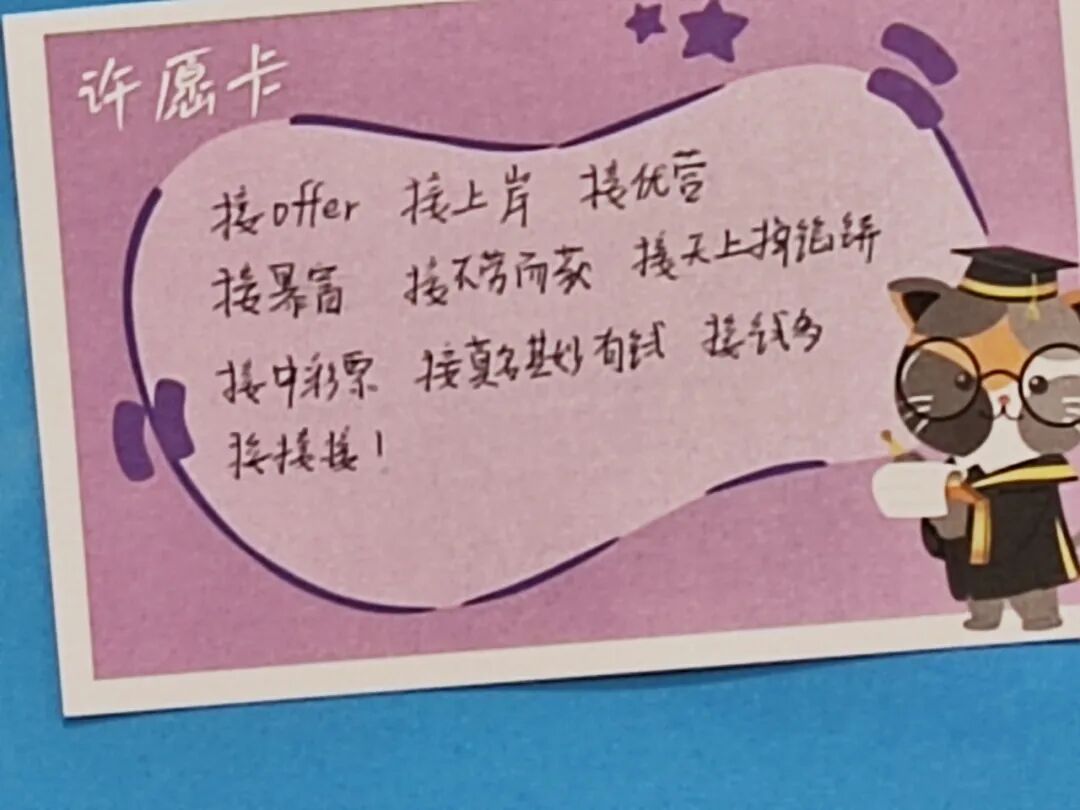 许愿卡
接offer 接上岸 接优营
接暴富 接不劳而获 接天上掉馅饼
接中彩票 接莫名其妙有钱 接钱多
接接接!